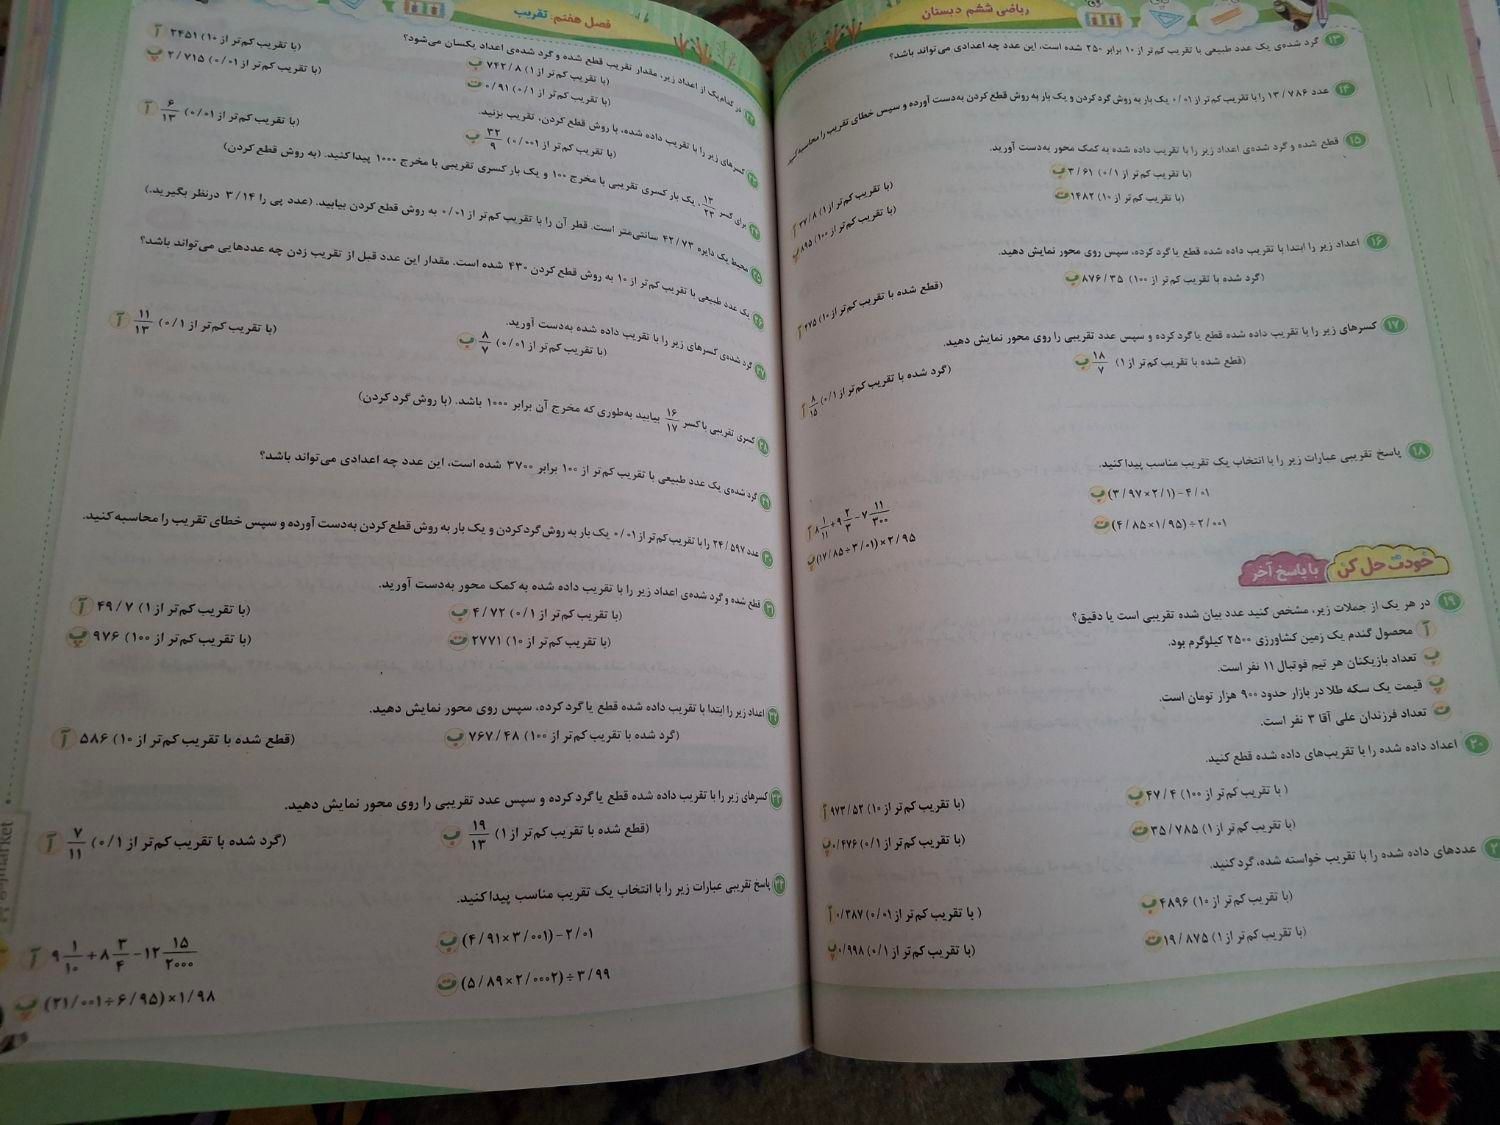 ریاضی ششم دبستان
۱۳ گرد شده‌ی یک عدد طبیعی با تقریب کم‌تر از ۱۰ برابر ۲۵۰ شده است، این عدد چه اعدادی می‌تواند باشد؟
۱۴ عدد ۱۳/۷۸۶ را با تقریب کم‌تر از ۰/۰۱ یک بار به روش گرد کردن و یک بار به روش قطع کردن به‌دست آورده و سپس خطای تقریب را محاسبه کنید.
۱۵ قطع شده و گرد شده‌ی اعداد زیر را با تقریب داده شده به کمک محور به‌دست آورید.
آ ۲۷/۸ (با تقریب کم‌تر از ۱) ب ۳/۶۱ (با تقریب کم‌تر از ۰/۱)
پ ۸۹۵ (با تقریب کم‌تر از ۱۰۰) ت ۱۴۸۲ (با تقریب کم‌تر از ۱۰)
۱۶ اعداد زیر را ابتدا با تقریب داده شده قطع یا گرد کرده، سپس روی محور نمایش دهید.
آ ۴۷۵ (قطع شده با تقریب کم‌تر از ۱۰) ب ۸۷۶/۳۵ (گرد شده با تقریب کم‌تر از ۱۰۰)
۱۷ کسرهای زیر را با تقریب داده شده قطع یا گرد کرده و سپس عدد تقریبی را روی محور نمایش دهید.
آ ۸/۱۵ (گرد شده با تقریب کم‌تر از ۰/۱) ب ۱۸/۷ (قطع شده با تقریب کم‌تر از ۱)
۱۸ پاسخ تقریبی عبارات زیر را با انتخاب یک تقریب مناسب پیدا کنید.
آ ۸ ۱/۱۱ + ۹ ۲/۳ − ۷ ۱۱/۳۰۰ ب (۳/۹۷×۲/۱)−۴/۰۱
پ (۱۷/۸۵÷۳/۰۱)×۲/۹۵ ت (۴/۸۵×۱/۹۵)÷۲/۰۰۱
خودت حل کن با پاسخ آخر
۱۹ در هر یک از جملات زیر، مشخص کنید عدد بیان شده تقریبی است یا دقیق؟
آ محصول گندم یک زمین کشاورزی ۲۵۰۰ کیلوگرم بود.
ب تعداد بازیکنان هر تیم فوتبال ۱۱ نفر است.
پ قیمت یک سکه طلا در بازار حدود ۹۰۰ هزار تومان است.
ت تعداد فرزندان علی آقا ۳ نفر است.
۲۰ اعداد داده شده را با تقریب‌های داده شده قطع کنید.
آ ۹۷۳/۵۲ (با تقریب کم‌تر از ۱۰) ب ۴۷/۴ (با تقریب کم‌تر از ۱۰۰)
پ ۰/۴۷۶ (با تقریب کم‌تر از ۰/۱) ت ۳۵/۷۸۵ (با تقریب کم‌تر از ۱)
عددهای داده شده را با تقریب خواسته شده، گرد کنید.
آ ۰/۳۸۷ (با تقریب کم‌تر از ۰/۰۱) ب ۴۸۹۶ (با تقریب کم‌تر از ۱۰)
پ ۰/۹۹۸ (با تقریب کم‌تر از ۰/۱) ت ۱۹/۸۷۵ (با تقریب کم‌تر از ۱)
فصل هفتم: تقریب
۲۲ در کدام‌یک از اعداد زیر، مقدار تقریب قطع شده و گرد شده‌ی اعداد یکسان می‌شود؟
آ ۲۴۵۱ (با تقریب کم‌تر از ۱۰) ب ۷۴۲/۸ (با تقریب کم‌تر از ۱)
پ ۲/۷۱۵ (با تقریب کم‌تر از ۰/۰۱) ت ۰/۹۱ (با تقریب کم‌تر از ۰/۱)
۲۳ کسرهای زیر را با تقریب داده شده، با روش قطع کردن، تقریب بزنید.
آ ۶/۱۳ (با تقریب کم‌تر از ۰/۰۱) ب ۳۲/۹ (با تقریب کم‌تر از ۰/۰۰۱)
۲۴ برای کسر ۱۳/۲۳، یک بار کسری تقریبی با مخرج ۱۰۰ و یک بار کسری تقریبی با مخرج ۱۰۰۰ پیدا کنید. (به روش قطع کردن)
۲۵ محیط یک دایره ۴۲/۷۳ سانتی‌متر است. قطر آن را با تقریب کم‌تر از ۰/۰۱ به روش قطع کردن بیابید. (عدد پی را ۳/۱۴ درنظر بگیرید.)
۲۶ یک عدد طبیعی با تقریب کم‌تر از ۱۰ به روش قطع کردن ۴۳۰ شده است. مقدار این عدد قبل از تقریب زدن چه عددهایی می‌تواند باشد؟
۲۷ گرد شده‌ی کسرهای زیر را با تقریب داده شده به‌دست آورید.
آ ۱۱/۱۳ (با تقریب کم‌تر از ۰/۱) ب ۸/۷ (با تقریب کم‌تر از ۰/۰۱)
۲۸ کسری تقریبی با کسر ۱۶/۱۷ بیابید به‌طوری که مخرج آن برابر ۱۰۰۰ باشد. (با روش گرد کردن)
۲۹ گرد شده‌ی یک عدد طبیعی با تقریب کم‌تر از ۱۰۰ برابر ۳۷۰۰ شده است، این عدد چه اعدادی می‌تواند باشد؟
۳۰ عدد ۲۴/۵۹۷ را با تقریب کم‌تر از ۰/۰۱ یک بار به روش گرد کردن و یک بار به روش قطع کردن به‌دست آورده و سپس خطای تقریب را محاسبه کنید.
۳۱ قطع شده و گرد شده‌ی اعداد زیر را با تقریب داده شده به کمک محور به‌دست آورید.
آ ۴۹/۷ (با تقریب کم‌تر از ۱) ب ۴/۷۲ (با تقریب کم‌تر از ۰/۱)
پ ۹۷۶ (با تقریب کم‌تر از ۱۰۰) ت ۲۷۷۱ (با تقریب کم‌تر از ۱۰)
۳۲ اعداد زیر را ابتدا با تقریب داده شده قطع یا گرد کرده، سپس روی محور نمایش دهید.
آ ۵۸۶ (قطع شده با تقریب کم‌تر از ۱۰) ب ۷۶۷/۴۸ (گرد شده با تقریب کم‌تر از ۱۰۰)
۳۳ کسرهای زیر را با تقریب داده شده قطع یا گرد کرده و سپس عدد تقریبی را روی محور نمایش دهید.
آ ۷/۱۱ (گرد شده با تقریب کم‌تر از ۰/۱) ب ۱۹/۱۳ (قطع شده با تقریب کم‌تر از ۱)
۳۴ پاسخ تقریبی عبارات زیر را با انتخاب یک تقریب مناسب پیدا کنید.
آ ۹ ۱/۱۰ + ۸ ۳/۴ − ۱۲ ۱۵/۲۰۰۰ ب (۴/۹۱×۳/۰۰۱)−۲/۰۱
پ (۲۱/۰۰۱÷۶/۹۵)×۱/۹۸ ت (۵/۸۹×۲/۰۰۰۲)÷۳/۹۹